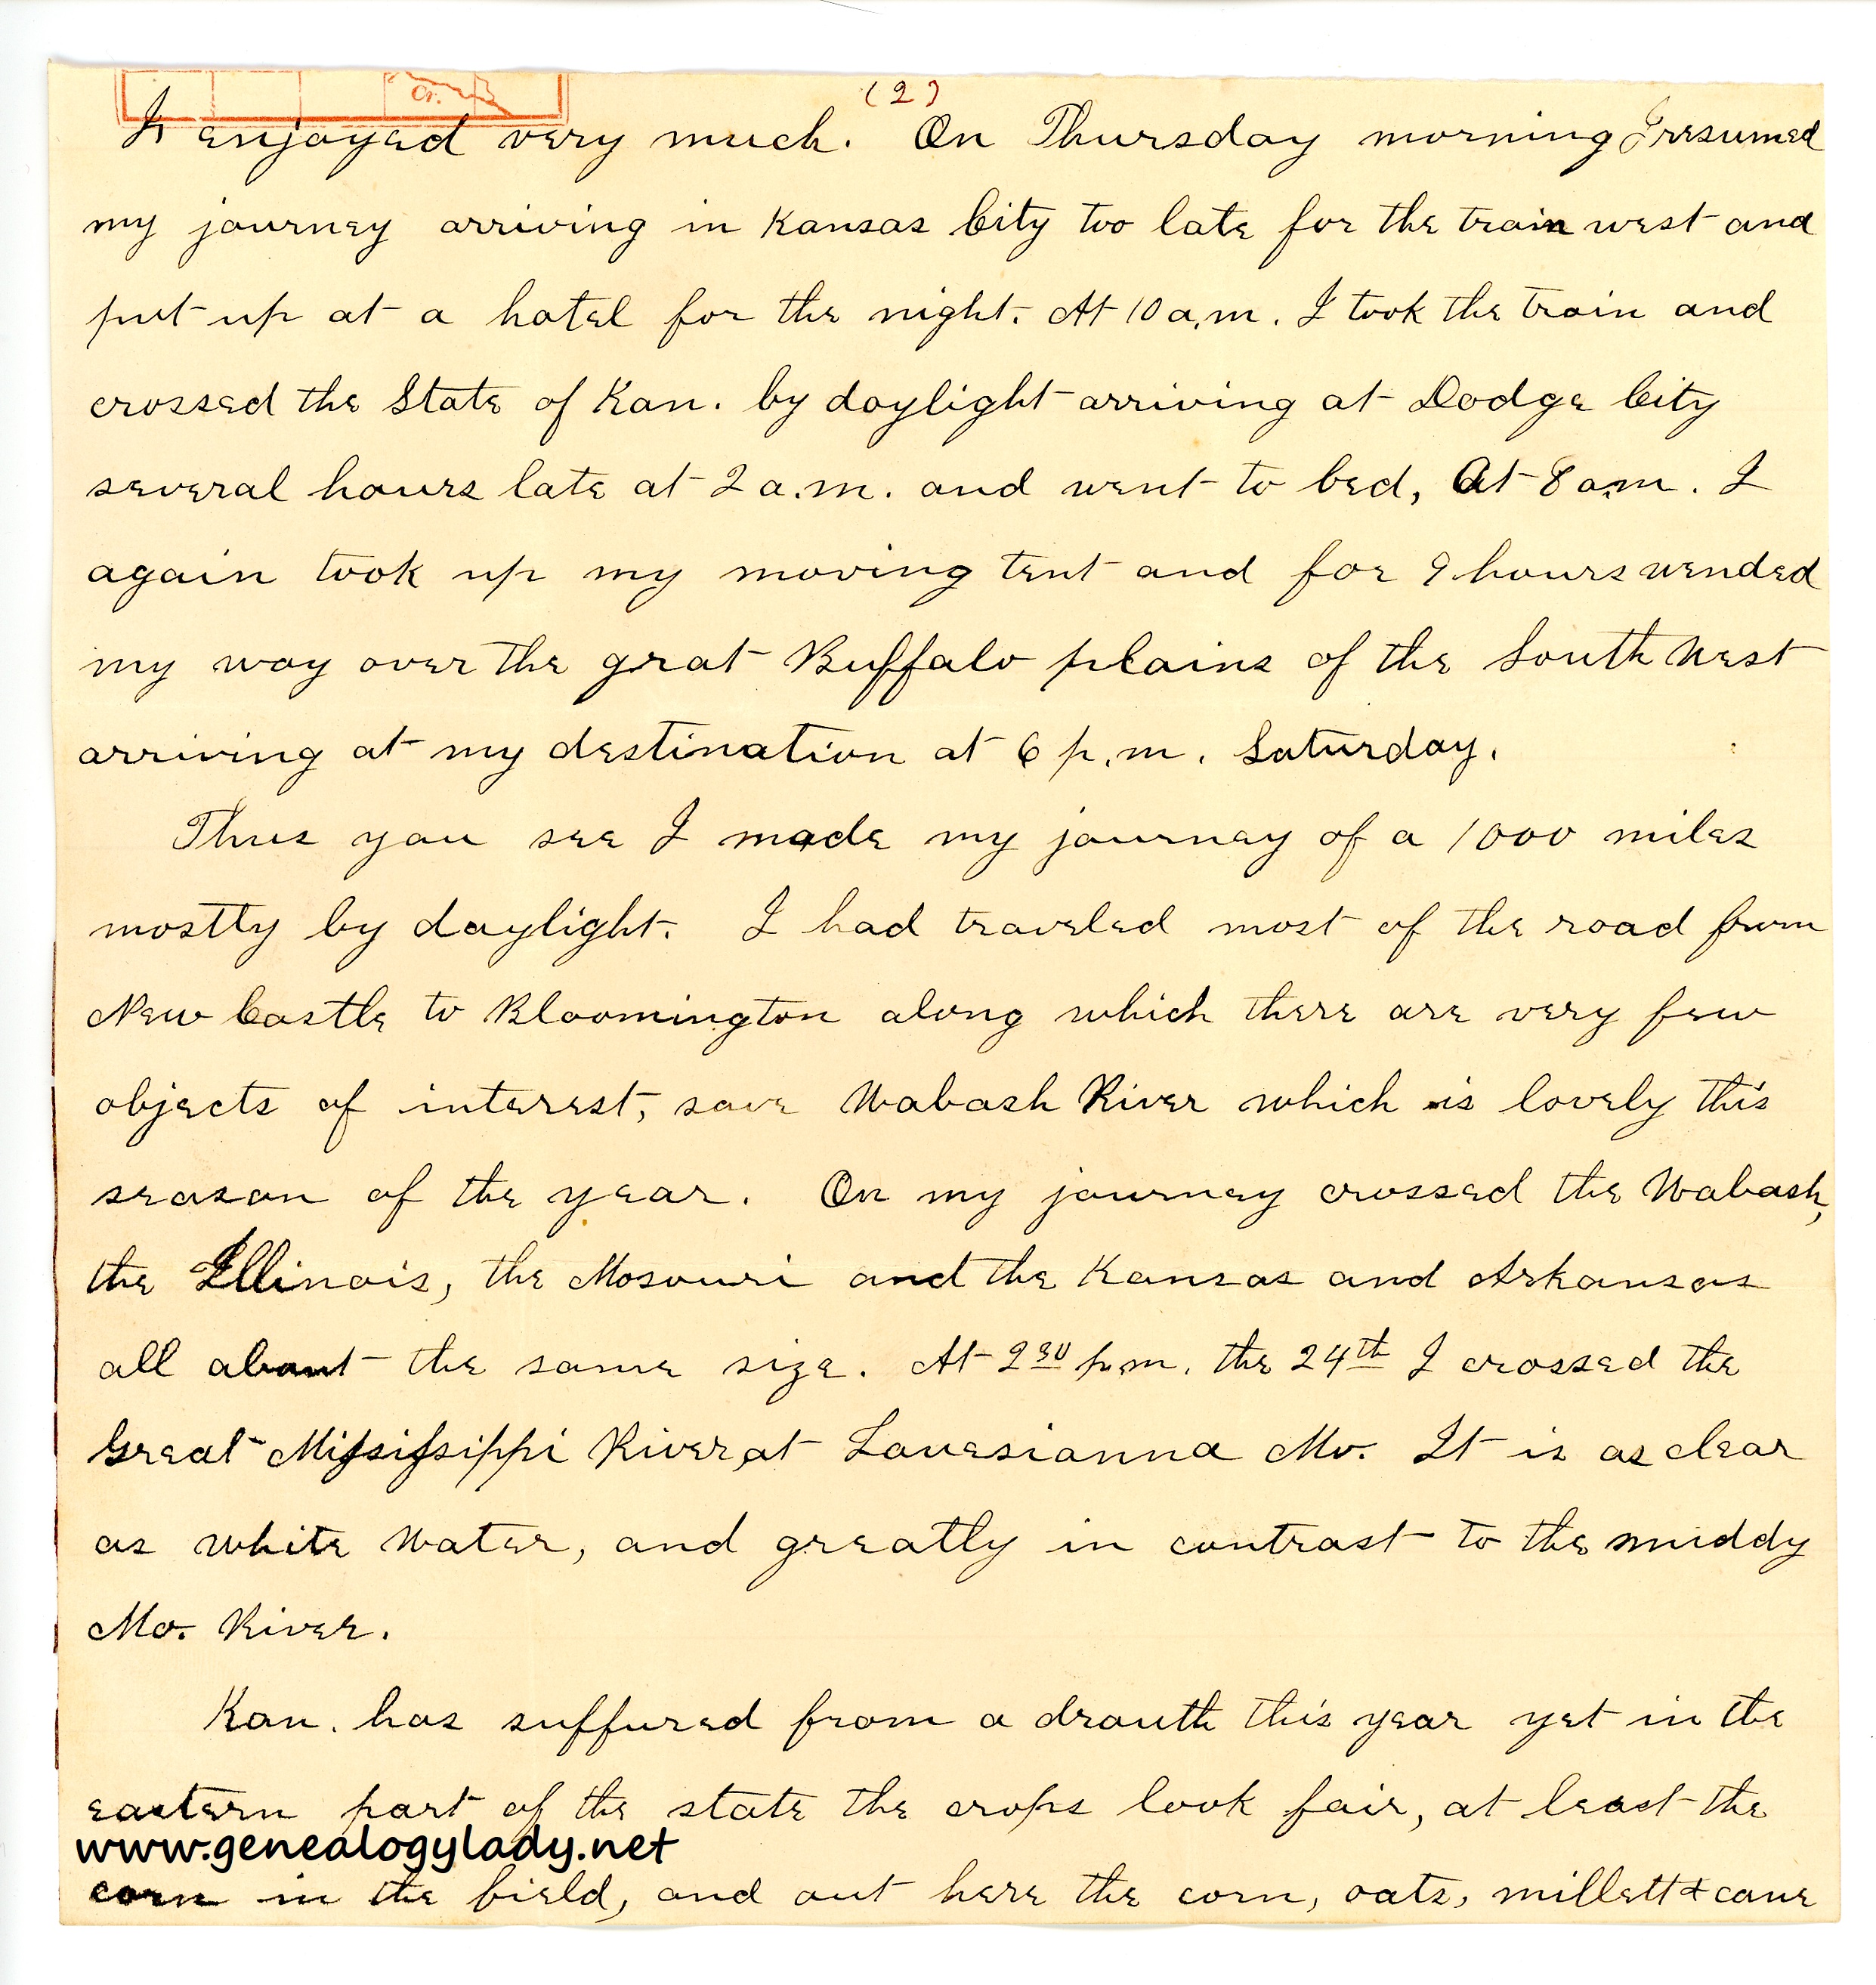 Cr.
(2)
I enjoyed very much. On Thursday morning I resumed
my journey arriving in Kansas City too late for the train west and
put up at a hotel for the night. At 10 a.m. I took the train and
crossed the State of Kan. by daylight arriving at Dodge City
several hours late at 2 a.m. and went to bed, At 8 a.m. I
again took up my moving tent and for 9 hours wended
my way over the great Buffalo plains of the South West
arriving at my destination at 6 p.m. Saturday.
Thus you see I made my journey of a 1000 miles
mostly by daylight. I had traveled most of the road from
New Castle to Bloomington along which there are very few
objects of interest, save Wabash River which is lovely this
season of the year. On my journey crossed the Wabash,
the Illinois, the Mosouri and the Kansas and Arkansas
all about the same size. At 2 30 p.m. the 24th I crossed the
Great Mississippi River at Louesianna Mo. It is as clear
as white Water, and greatly in contrast to the muddy
Mo. River.
Kan. has suffured from a drouth this year yet in the
eastern part of the state the crops look fair, at least the
www.genealogylady.net
corn in the field, and out here the corn, oats, millett & cane